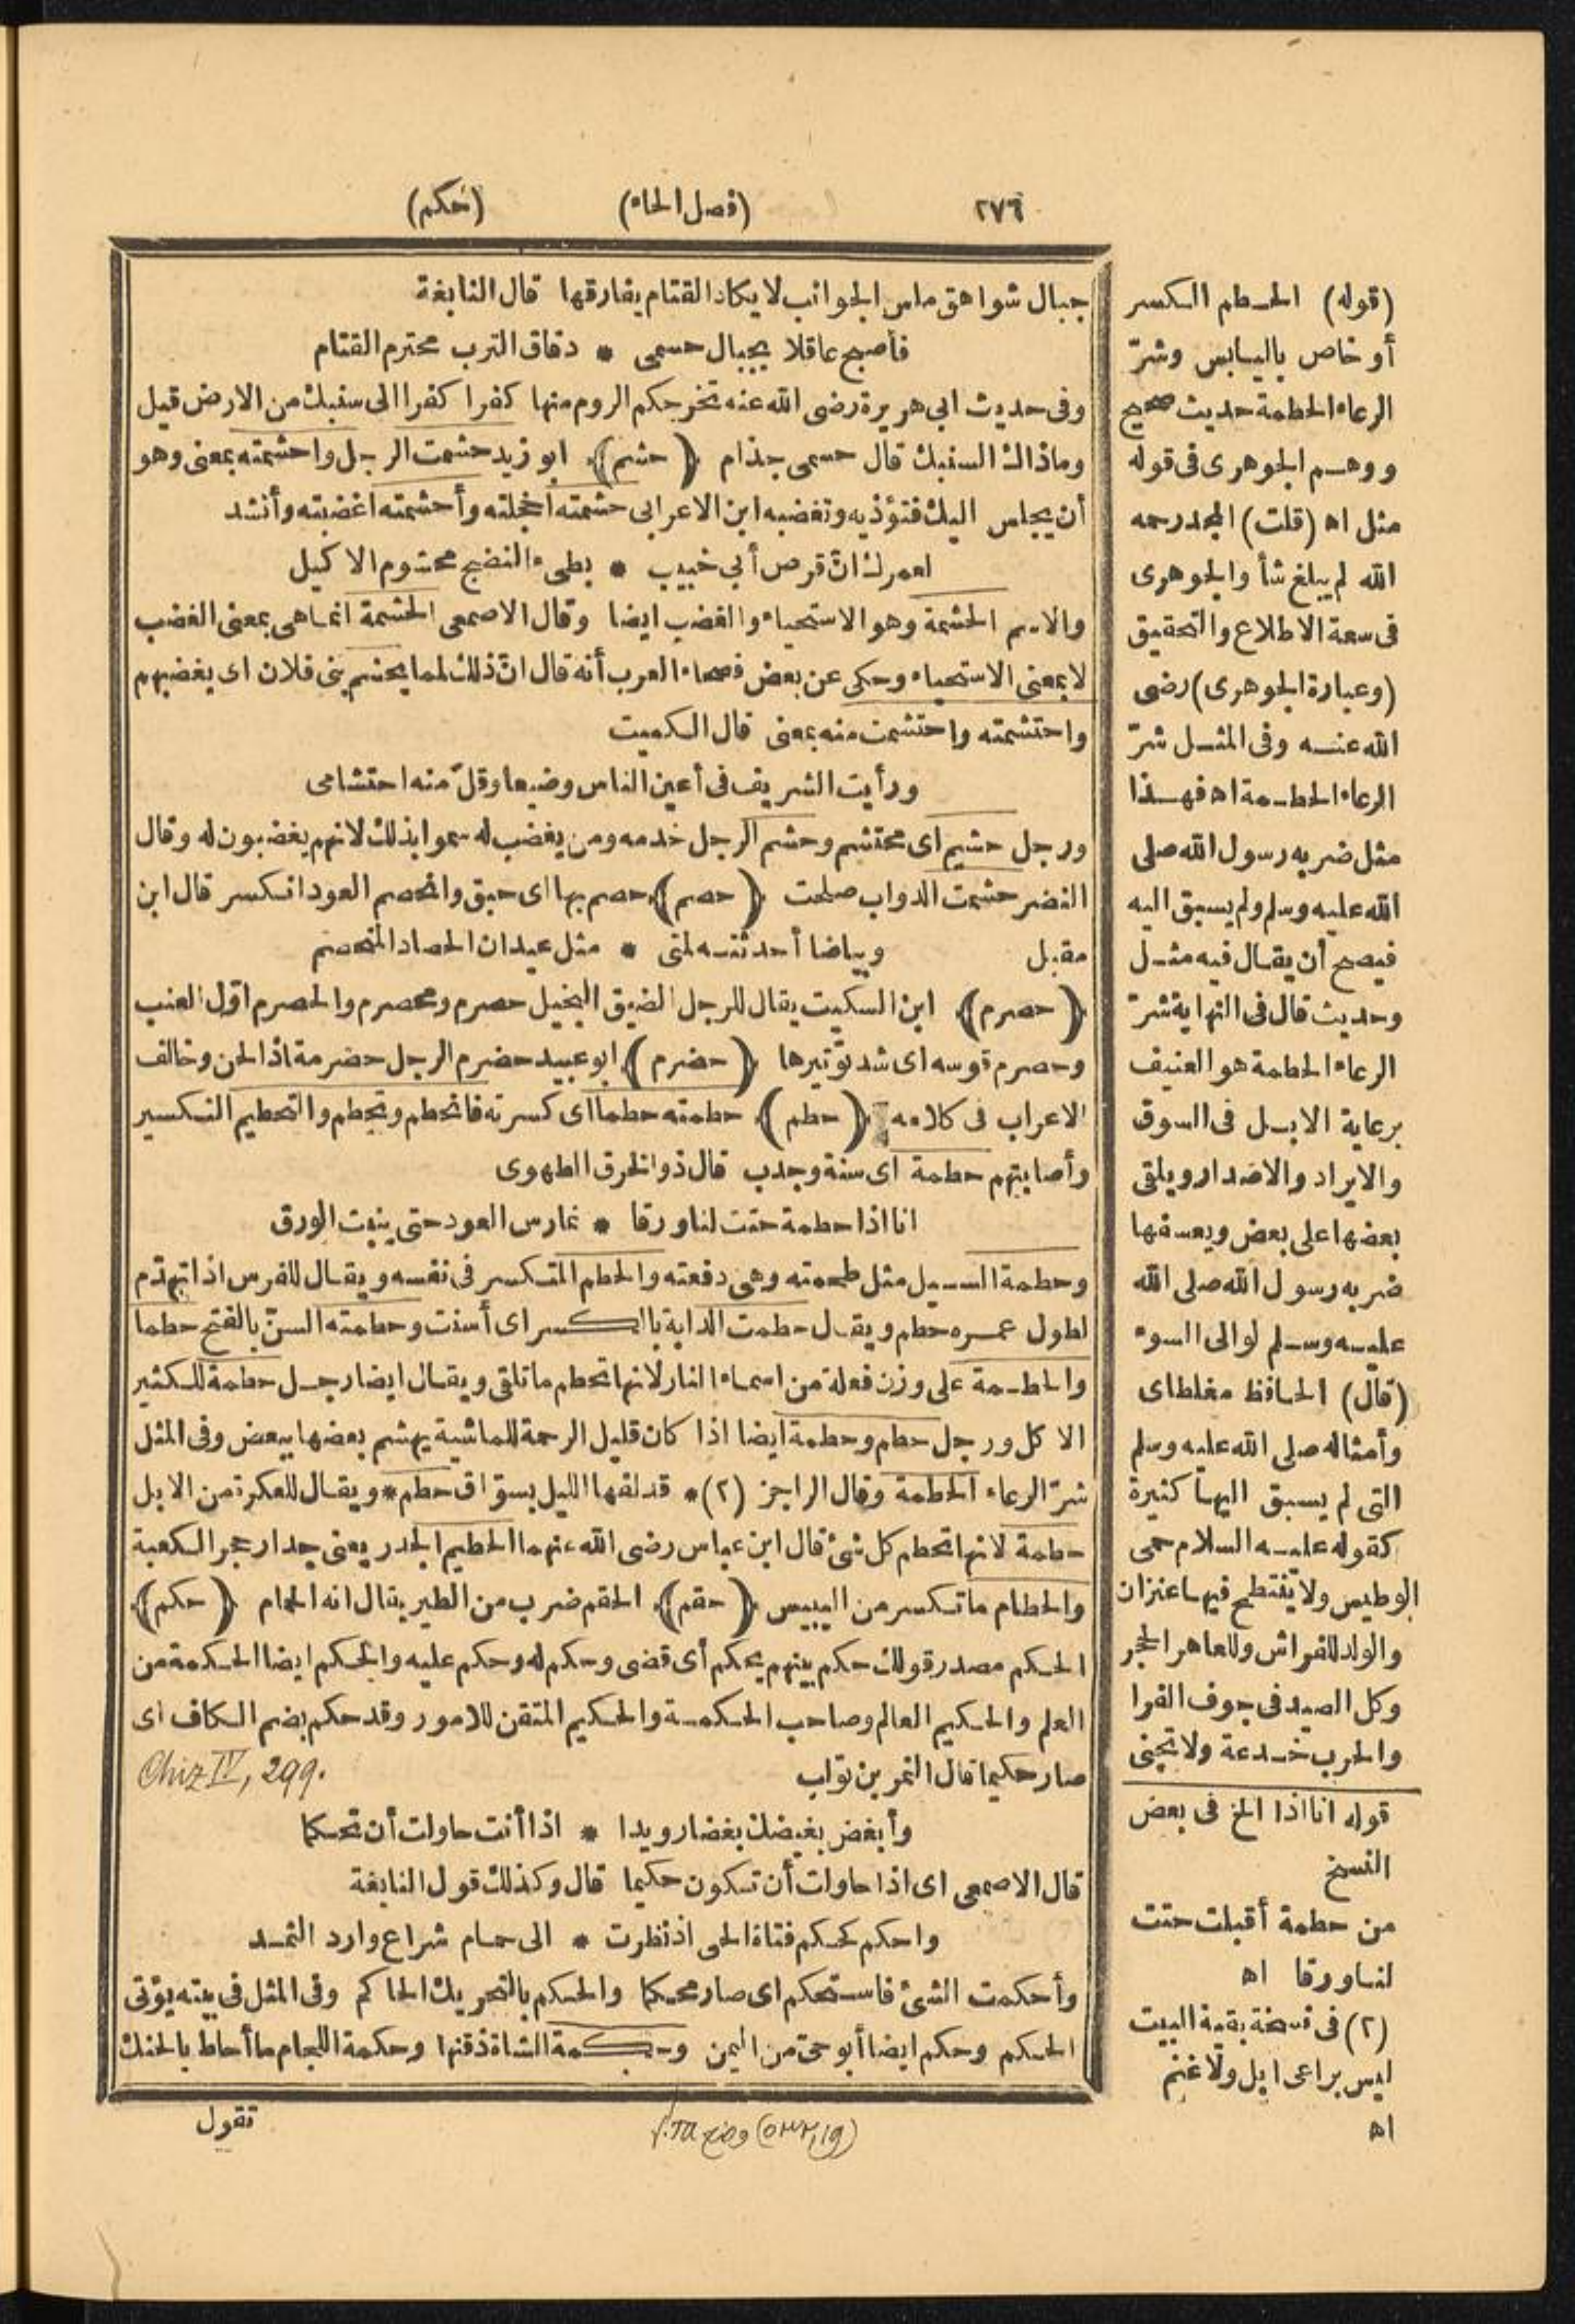 ٢٧٦
(فصل الحاء)
(حكم)
جبال شواهق ملس الجوانب لا يكاد القتام يفارقها قال النابغة
فأصبح عاقلا بجبال حسمى * دقاق الترب محترم القتام
وفى حديث ابى هريرة رضى الله عنه تخرجكم الروم منها كفرا كفرا الى سنبك من الارض قيل
وماذاك السنبك قال حسمى جذام (حشم) ابو زيد حشمت الرجل واحشمته بمعنى وهو
أن يجلس اليك فتؤذيه وتغضبه ابن الاعرابى حشمته اخجلته وأحشمته اغضبته وأنشد
لعمرك انّ قرص أبى خبيب * بطىء النضج محشوم الاكيل
والاسم الحشمة وهو الاستحياء والغضب ايضا وقال الاصمعى الحشمة انما هى بمعنى الغضب
لا بمعنى الاستحياء وحكى عن بعض فصحاء العرب أنه قال انّ ذلك لمما يحشم بنى فلان اى يغضبهم
واحتشمته واحتشمت منه بمعنى قال الكميت
ورأيت الشريف فى أعين الناس وضيعا وقلّ منه احتشامى
ورجل حشيم اى محتشم وحشم الرجل خدمه ومن يغضب له سموا بذلك لانهم يغضبون له وقال
النضر حشمت الدواب صلحت (حصم) حصم بها اى حبق وانحصم العود انكسر قال ابن
مقبل وبياضا أحدثته لمتى * مثل عيدان الحصاد المنحصم
(حصرم) ابن السكيت يقال للرجل الضيق البخيل حصرم ومحصرم والحصرم اوّل العنب
وحصرم قوسه اى شد توتيرها (حضرم) ابو عبيد حضرم الرجل حضرمة اذا لحن وخالف
الاعراب فى كلامه (حطم) حطمته حطما اى كسرته فانحطم وتحطم والتحطيم التكسير
وأصابتهم حطمة اى سنة وجدب قال ذو الخرق الطهوى
انا اذا حطمة حتت لنا ورقا * نمارس العود حتى ينبت الورق
وحطمة السيل مثل طحمته وهى دفعته والحطم المتكسر فى نفسه ويقال للفرس اذا تهدّم
لطول عمره حطم ويقال حطمت الدابة بالكسر اى أسنت وحطمته السنّ بالفتح حطما
والحطمة على وزن فعلة من اسماء النار لانها تحطم ما تلقى ويقال ايضا رجل حطمة للكثير
الاكل ورجل حطم وحطمة ايضا اذا كان قليل الرحمة للماشية يهشم بعضها ببعض وفى المثل
شرّ الرعاء الحطمة وقال الراجز (٢) * قد لفها الليل بسوّاق حطم * ويقال للعكرة من الابل
حطمة لانها تحطم كل شئ قال ابن عباس رضى الله عنهما الحطيم الجدر يعنى جدار حجر الكعبة
والحطام ما تكسر من اليبيس (حقم) الحقم ضرب من الطير يقال انه الحمام (حكم)
الحكم مصدر قولك حكم بينهم يحكم أى قضى وحكم له وحكم عليه والحكم ايضا الحكمة من
العلم والحكيم العالم وصاحب الحكمة والحكيم المتقن للامور وقد حكم بضم الكاف اى
صار حكيما قال النمر بن تولب
Chiz IV, 299.
وأبغض بغيضك بغضا رويدا * اذا أنت حاولت أن تحكما
قال الاصمعى اى اذا حاولت أن تكون حكيما قال وكذلك قول النابغة
واحكم كحكم فتاة الحى اذ نظرت * الى حمام شراع وارد الثمد
وأحكمت الشئ فاستحكم اى صار محكما والحكم بالتحريك الحاكم وفى المثل فى بيته يؤتى
الحكم وحكم ايضا أبو حىّ من اليمن وحكمة الشاة ذقنها وحكمة اللجام ما أحاط بالحنك
تقول
(قوله) الحطم الكسر
أو خاص باليابس وشرّ
الرعاء الحطمة حديث صحيح
ووهم الجوهرى فى قوله
مثل اه (قلت) المجد رحمه
الله لم يبلغ شأ والجوهرى
فى سعة الاطلاع والتحقيق
(وعبارة الجوهرى) رضى
الله عنه وفى المثل شرّ
الرعاء الحطمة اه فهذا
مثل ضربه رسول الله صلى
الله عليه وسلم ولم يسبق اليه
فيصح أن يقال فيه مثل
وحديث قال فى النهاية شرّ
الرعاء الحطمة هو العنيف
برعاية الابل فى السوق
والايراد والاصدار ويلقى
بعضها على بعض ويعسفها
ضربه رسول الله صلى الله
عليه وسلم لوالى السوء
(قال) الحافظ مغلطاى
وأمثاله صلى الله عليه وسلم
التى لم يسبق اليها كثيرة
كقوله عليه السلام حمى
الوطيس ولا تنتطح فيها عنزان
والولد للفراش وللعاهر الحجر
وكل الصيد فى جوف الفرا
والحرب خدعة ولا تجنى
قوله انا اذا الخ فى بعض
النسخ
من حطمة أقبلت حتت
لنا ورقا اه
(٢) فى نسخة بقية البيت
ليس براعى ابل ولا غنم
اه